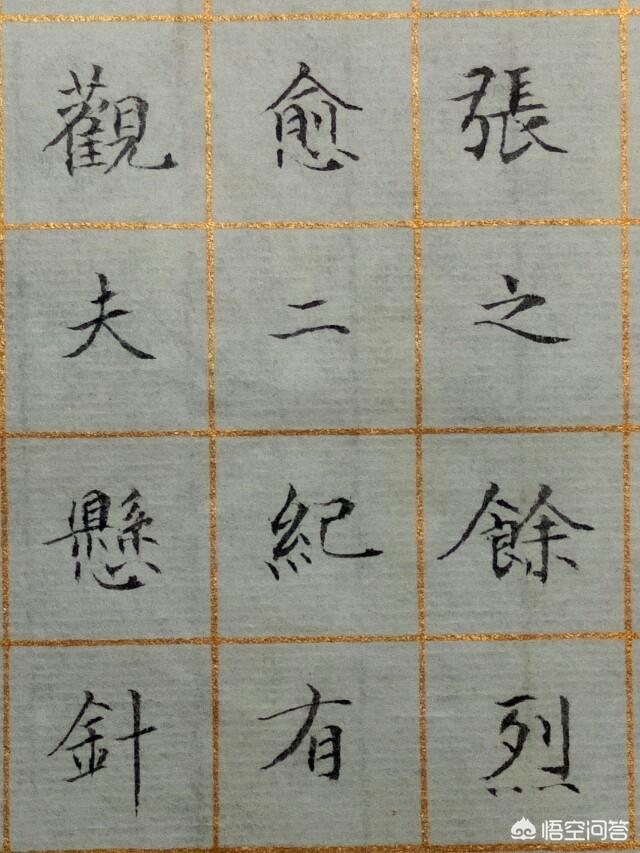 張之餘烈
愈二紀有
觀夫懸針
悟空问答